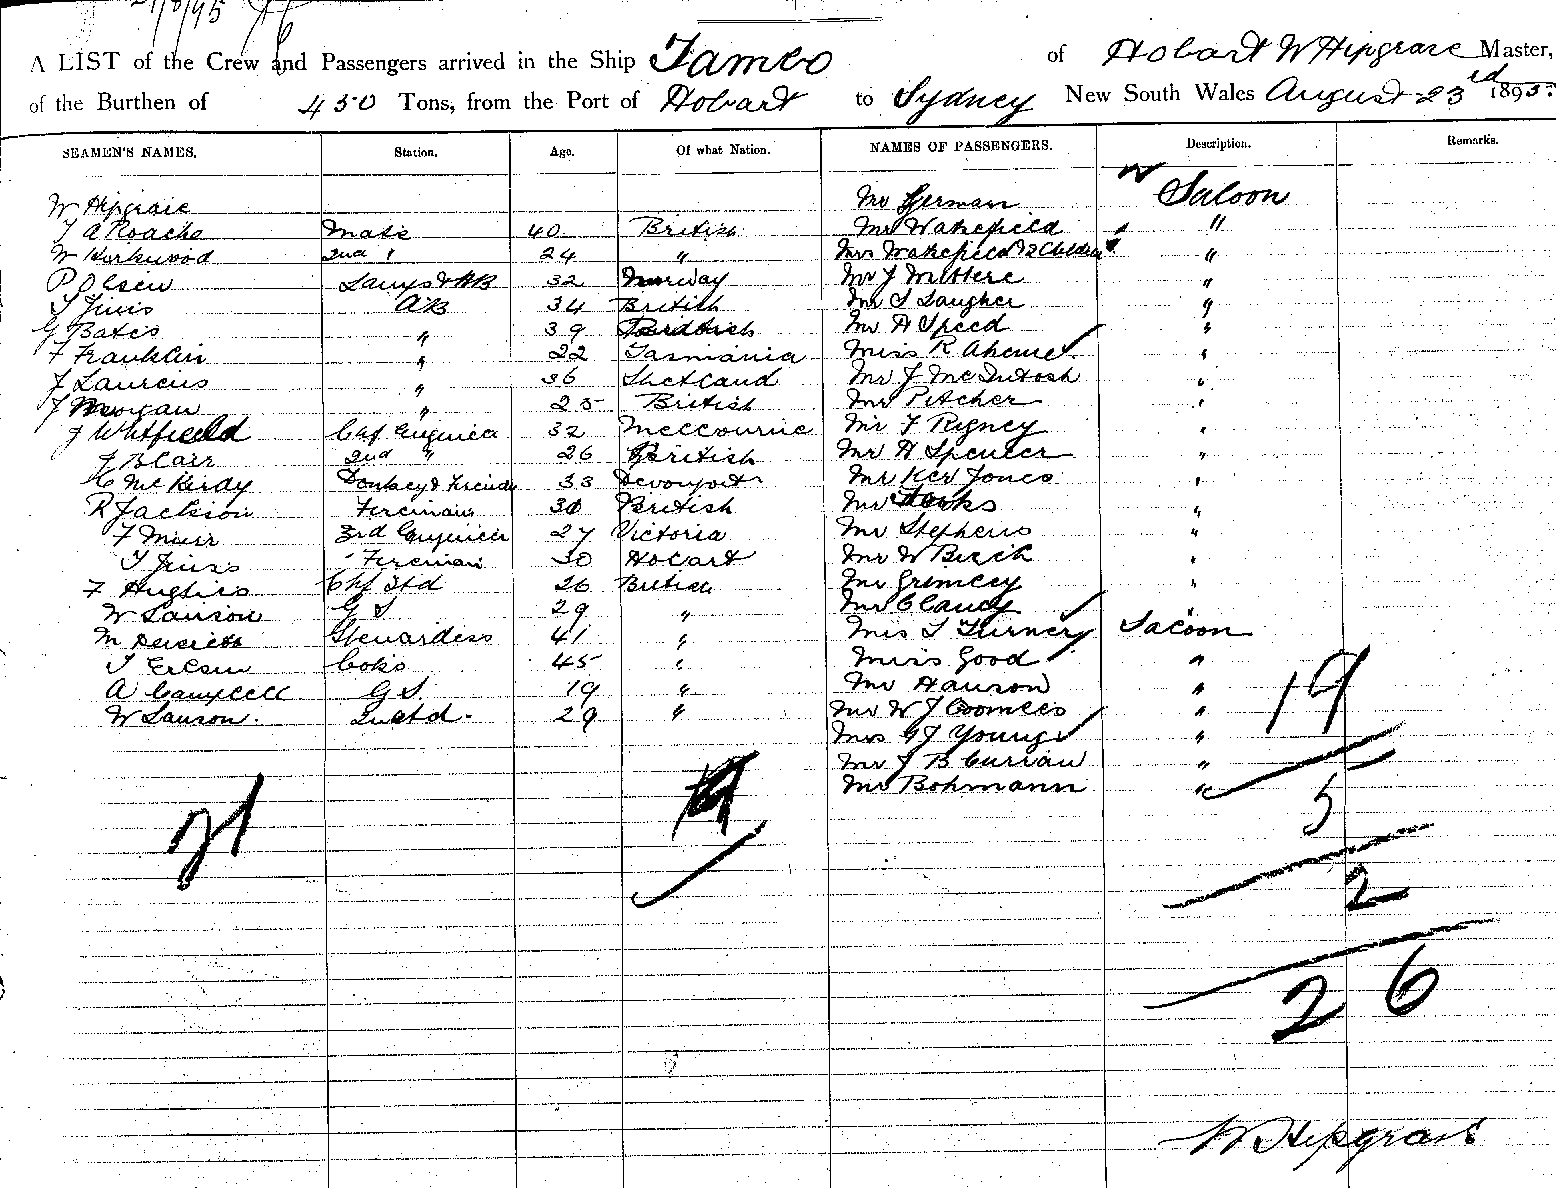 21/8/95
A LIST of the Crew and Passengers arrived in the Ship Tambo of Hobart W Hipgrave Master,
of the Burthen of 450 Tons, from the Port of Hobart to Sydney New South Wales August 23rd 1895.
SEAMEN'S NAMES. Station. Age. Of what Nation. NAMES OF PASSENGERS. Description. Remarks.
W Hipgrave Mr German Saloon
A Roache Mate 40 British Mr Wakefield "
W Kirkwood 2nd " 24 " Mrs Wakefield & 2 Children "
P Olsen Lamps & AB 32 Norway Mr J "
AB 34 British Mr "
G Bates " 39 Mr A Speed "
F Franklin " 22 Tasmania Miss R "
Laurens " 36 Shetland Mr J McIntosh "
J Morgan " 25 British Mr Pitcher "
J Whitfield Chf Engineer 32 Melbourne Mr F Rigney "
J Blair 2nd " 26 British Mr A Spencer "
McKirdy Donkey & Fireman 33 Devonport Mr Ker Jones "
R Jackson Fireman 30 British Mr "
F Muir 3rd Engineer 27 Victoria Mr Stephens "
Fireman 30 Hobart Mr W Birch "
F Hughes Chf Std 26 British Mr "
W Lawson G S 29 " Mr Clancy
M Stewardess 41 " Miss Turner Saloon
Cook 45 " Miss Good "
A Campbell G S. 19 " Mr Hanson "
W Lawson. 2nd Std. 29 " Mr W J Coombes "
Mrs G J Young "
Mr J B Curran "
Mr Bohmann "
19
21
5
2
26
W Hipgrave